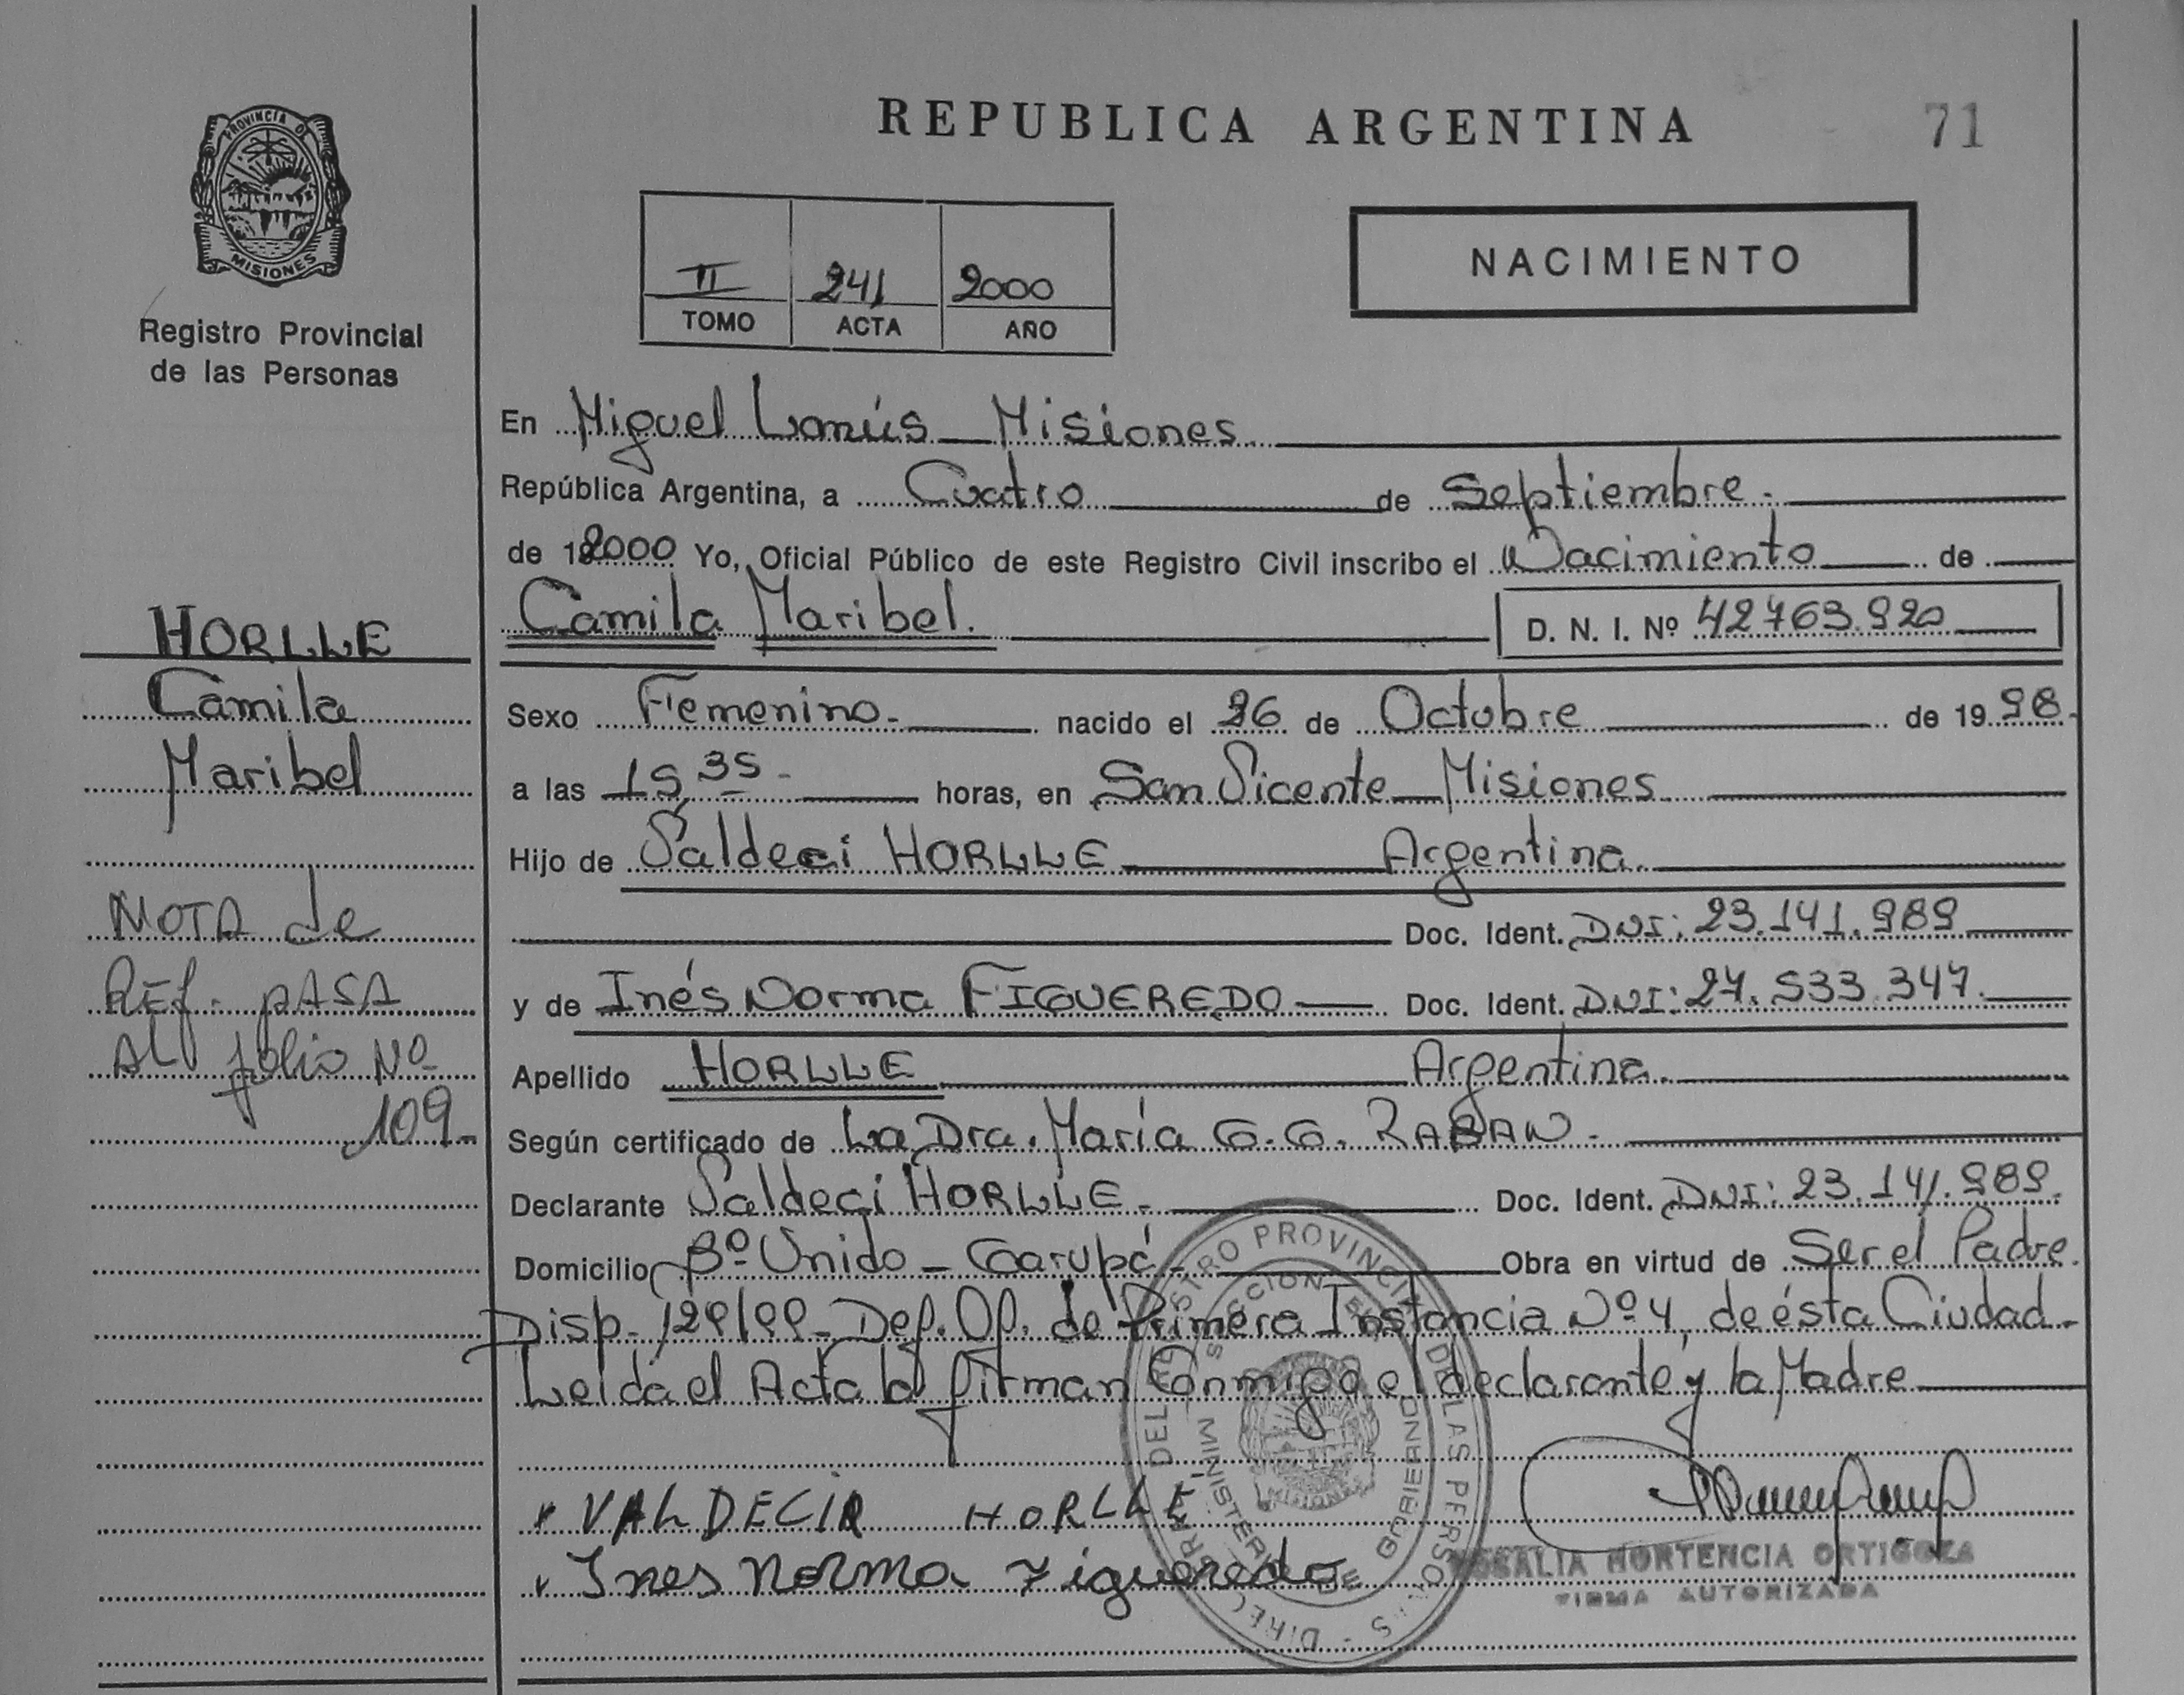 REPUBLICA ARGENTINA
71
PROVINCIA DE
MISIONES
Registro Provincial
de las Personas
II 241 2000
TOMO ACTA AÑO
NACIMIENTO
En Miguel Lanús — Misiones
República Argentina, a Cuatro de Septiembre.
de 192000 Yo, Oficial Público de este Registro Civil inscribo el Nacimiento de
Camila Maribel. D. N. I. Nº 42763.920
Sexo Femenino. nacido el 26 de Octubre de 19 98.
a las 15,35 horas, en San Vicente — Misiones
Hijo de Valdeci HORLLE Argentina.
Doc. Ident. DNI: 23.141.989
y de Inés Norma FIGUEREDO Doc. Ident. DNI: 27.533.347.
Apellido HORLLE Argentina.
Según certificado de La Dra. María G.G. RABAN.
Declarante Valdeci HORLLE. Doc. Ident. DNI: 23.141.989.
Domicilio Bº Unido — Garupá. Obra en virtud de Ser el Padre.
Disp. 129/99 — Def. Of. de Primera Instancia Nº 4, de ésta Ciudad.
Leída el Acta la firman Conmigo el declarante y la Madre
VALDECIR HORLLE
Ines Norma Figueredo
ROSALIA HORTENCIA ORTIGOZA
FIRMA AUTORIZADA
HORLLE
Camila
Maribel
NOTA de
REf. pASA
AL folio Nº
109-